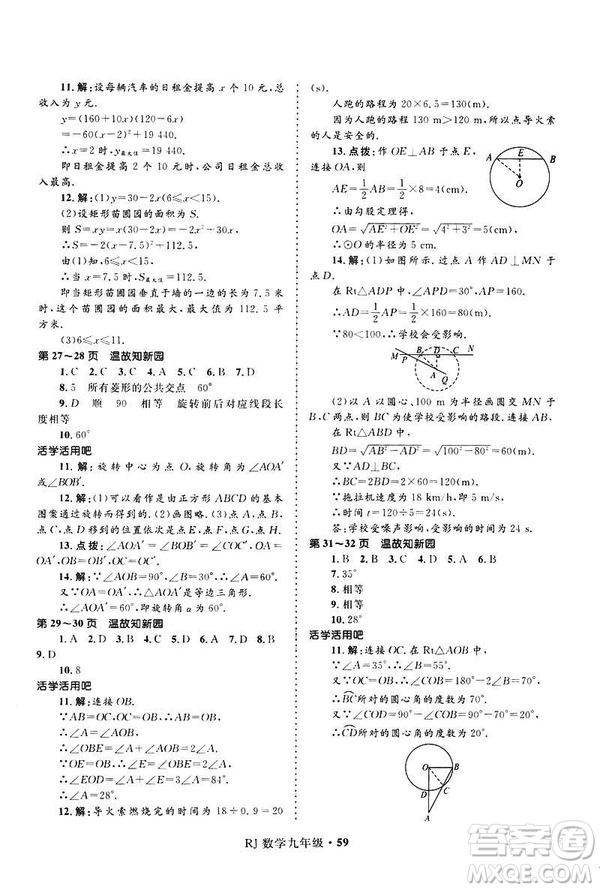 11. 解:设每辆汽车的日租金提高 x 个 10 元,总
收入为 y 元.
y=(160+10x)(120-6x)
y=-60(x-2)²+19 440.
∴x=2 时,y最大值=19 440.
即日租金提高 2 个 10 元,公司日租金总收入
最高.
12. 解:(1)y=30-2x(6≤x<15)
(2)设矩形苗圃园的面积为 S.
则 S=xy=x(30-2x)=-2x²+30x
∴S=-2(x-7.5)²+112.5
由(1)知,6≤x<15
∴当 x=7.5 时,S最大值=112.5
即当矩形苗圃园垂直于墙的一边的长为 7.5
米时,这个苗圃园的面积最大,最大值为 112.5
(3)6≤x≤11.
第 27~28 页 温故知新园
1. C 2. C 3. A 4. C 5. D 6. C 7. A
8. 5 所有菱形的公共交点 60°
9. D 顺 90 相等 旋转前后对应线段长
度相等
10. 60°
活学活用吧
11. 解:旋转中心为点 O,旋转角有∠AOA′、
∠BOB′、∠COC′.
12. 解:(1)可以看作是由正方形 ABCD 的基本
图案经过旋转而得到的.(2)画图略.(3)点 A、点
B、点 C、点 D 移动到的位置是点 E、点 F、点 G、点 H.
13. 点拨:∵∠AOA′=∠BOB′=∠COC′,
∴还有两个角与∠AOA′相等.
14. 解:∵∠AOB=90°,∠B=30°,∴∠A=60°,
又∵OA=OA′,∴△AOA′是等边三角形.
∴∠AOA′=60°,即旋转角α为 60°.
第 29~30 页 温故知新园
1. A 2. D 3. B 4. C 5. D 6. D 7. B 8. B
9. D
10. 8
活学活用吧
11. 解:连接 OB.
∵AB=OC,OB=OC,∴AB=OB.
∴∠AOB=∠A=20°.
∴∠OBE=∠A+∠AOB=40°.
∵OB=OE,∴∠OEB=∠OBE=40°.
∴∠EOD=∠A+∠E=60°.
12. 解:导火索燃烧完的时间为 18÷0.9=20
(s).
人跑的路程为 20×6.5=130(m).
因为人跑的路程 130 m>120 m,所以点导火索
的人是安全的.
13. 点拨:作 OE⊥AB 于点 E,
连接 OA,则
AE=1/2 AB=1/2×8=4(cm).
∴由勾股定理得,
OA=√(AE²+OE²)=√(4²+3²)=5(cm)
∴⊙O 的半径为 5(cm)
14. 解:(1)过点 A 作 AD⊥MN 于
点 D.
在 Rt△ADP 中,∠APD=30°,
∴AD=1/2 AP=1/2×160=80(m)<100(m).
∴MN 上到 A 的最短距离为 80 m,
∴学校会受影响.
(2)以 A 为圆心,100 m 为半径画圆交 MN 于
B、C 两点,则 BC 为使学校受影响的路段.
在 Rt△ABD 中,
BD=√(AB²-AD²)=√(100²-80²)=60(m),
又∵AD⊥BC,
∴BC=2BD=2×60=120(m).
∵拖拉机速度为 18 km/h=5 m/s.
∴时间=120÷5=24(s).
答:学校受噪声影响,受影响的时间为 24 s.
第 31~32 页 温故知新园
1. B 2. C 3. C 4. A 5. D 6. B
7. 35°
8. 相等
9. 相等
10. 28°
活学活用吧
11. 解:连接 OC. 在 Rt△AOB 中,
∵∠A=35°,∴∠B=55°.
又∵OB=OC,∴∠COB=180°-2∠B=70°.
∴BC所对的圆心角的度数为 70°.
又∵∠COD=90°-∠COB=90°-70°=20°.
∴CD所对的圆心角的度数为 20°.
A
B
O
B
D
C
M
N
A
P
Q
O
B
D
C
A
RJ 数学九年级·59